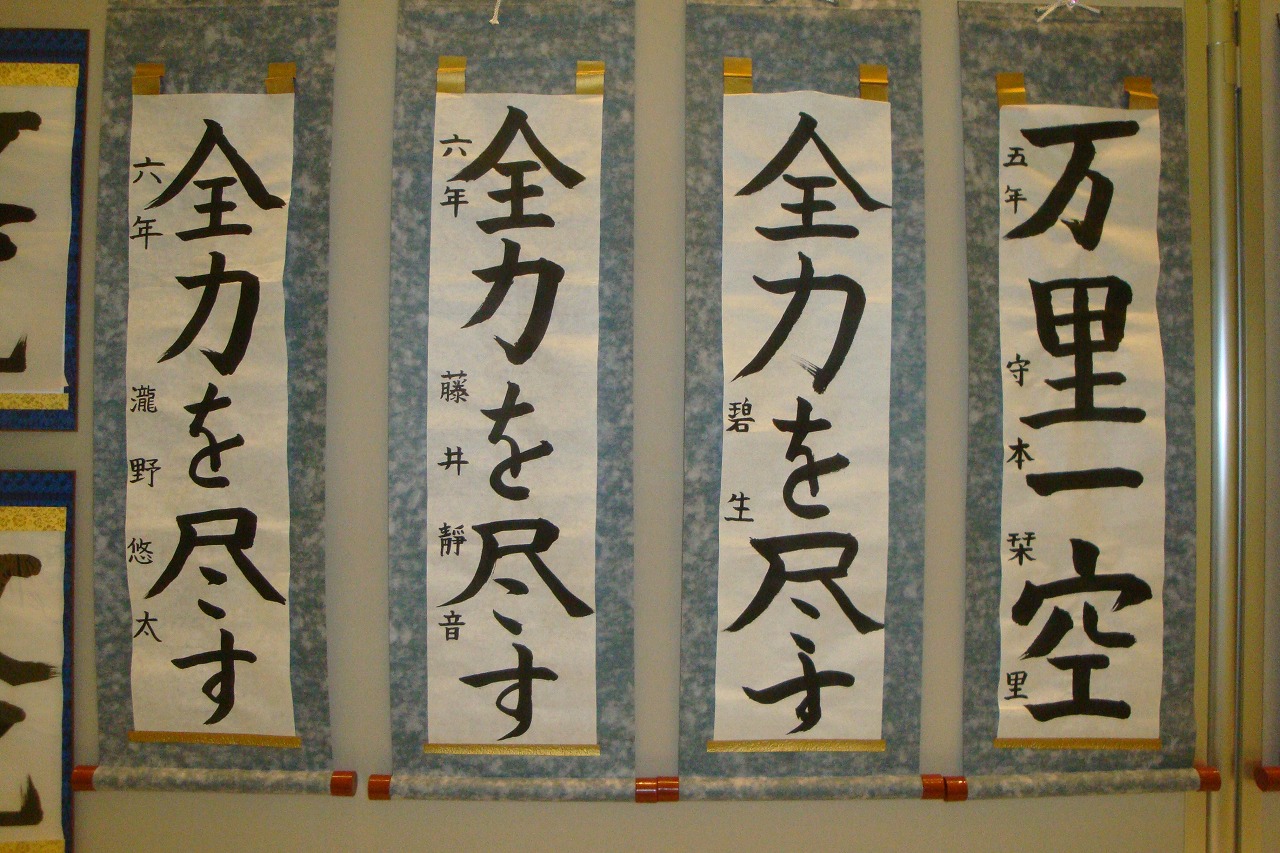 万里一空
五年 守本栞里
全力を尽す
碧生
全力を尽す
六年 藤井靜音
全力を尽す
六年 瀧野悠太